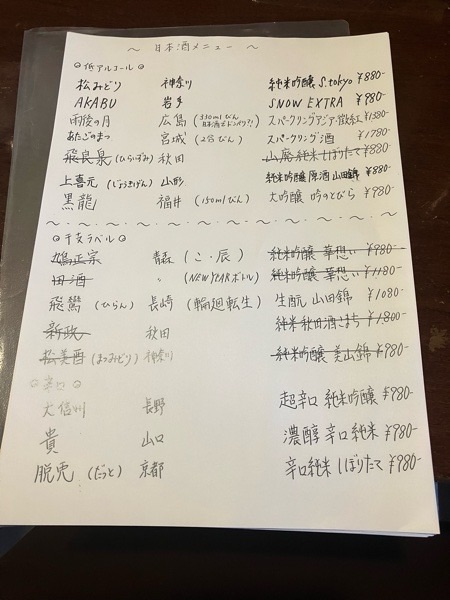 ～ 日本酒メニュー ～
◎低アルコール◎
松みどり 神奈川 純米吟醸 S.tokyo ¥880-
AKABU 岩手 SNOW EXTRA ¥980-
雨後の月 広島 (330mlびん 日本酒で) スパークリング
あたごのまつ 宮城 (2合びん) スパークリング酒 ¥1780-
飛良泉 (ひらいずみ) 秋田 山廃純米しぼりたて ¥880-
上喜元 (じょうきげん) 山形 純米吟醸 原酒 山田錦 ¥880-
黒龍 福井 (150mlびん) 大吟醸 吟のとびら ¥980-
◎干支ラベル◎
鳩正宗 青森 (こ・辰) 純米吟醸 華想い ¥980-
田酒 〃 (NEW YEARボトル) 純米吟醸 華想い ¥1180-
飛鸞 (ひらん) 長崎 (輪廻転生) 生酛 山田錦 ¥1080-
新政 秋田 純米 秋田酒こまち ¥1800-
松美酉 (まつみどり) 神奈川 純米吟醸 美山錦 ¥980-
◎辛口◎
大信州 長野 超辛口 純米吟醸 ¥980-
貴 山口 濃醇 辛口 純米 ¥980-
脱兎 (だっと) 京都 辛口純米 しぼりたて ¥980-